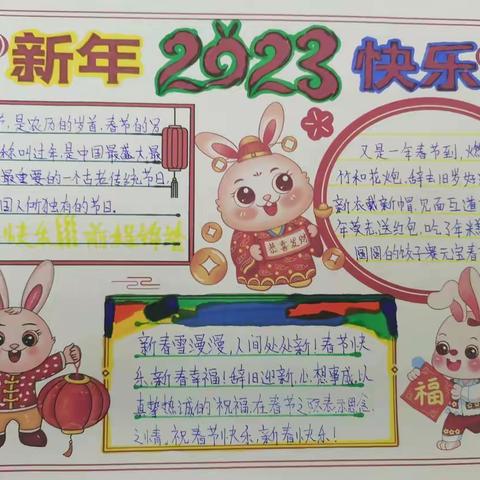 新年2023快乐
节,是农历的岁首,春节的另
称叫过年,是中国最盛大最
最重要的一个古老传统节日
国人所独有的节日.
快乐!!!
又是一年春节到,燃
竹和花炮.辞去旧岁
新衣戴新帽.见面互道
年菜
送红包,吃了年
圆圆的饺子裹元宝
恭喜发财
新春雪漫漫,人间处处新!春节快
乐,新春幸福!辞旧迎新,心想事成,以
真挚热诚的祝福,在春节之际表示思念
之情.祝春节快乐,新春快乐!
福